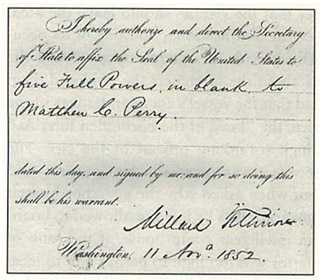 I hereby authorize and direct the Secretary
of State to affix the Seal of the United States to
five Full Powers, in blank, to
Matthew C. Perry.
dated this day, and signed by me: and for so doing this
shall be his warrant.
Millard Fillmore
Washington, 11 Nov. 1852.